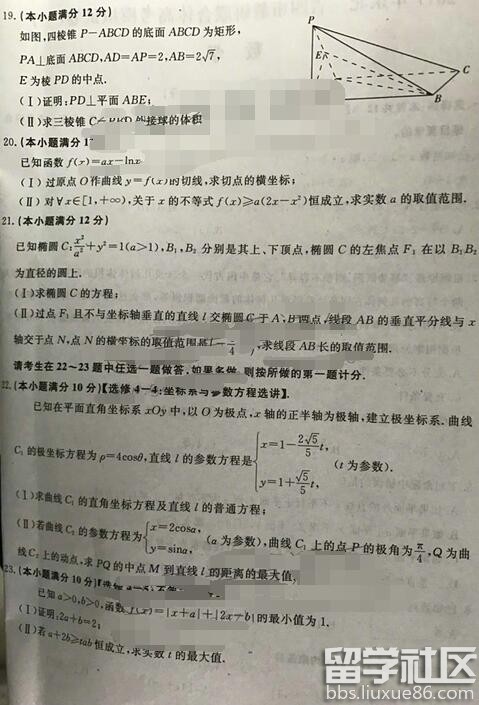 19.(本小题满分12分)
如图,四棱锥P-ABCD的底面ABCD为矩形,
PA⊥底面ABCD,AD=AP=2,AB=2√7,
E为棱PD的中点.
(Ⅰ)证明:PD⊥平面ABE;
(Ⅱ)求三棱锥C- 外接球的体积
P
E
C
B
20.(本小题满分1
已知函数f(x)=ax-lnx
(Ⅰ)过原点O作曲线y=f(x)的切线,求切点的横坐标;
(Ⅱ)对∀x∈[1,+∞),关于x的不等式f(x)≥a(2x-x²)恒成立,求实数a的取值范围.
21.(本小题满分12分)
已知椭圆C:x²/a²+y²=1(a>1),B₁,B₂分别是其上、下顶点,椭圆C的左焦点F₁在以B₁B₂
为直径的圆上.
(Ⅰ)求椭圆C的方程;
(Ⅱ)过点F₁且不与坐标轴垂直的直线l交椭圆C于A、B两点,线段AB的垂直平分线与x
轴交于点N,点N的横坐标的取值范围是 ,求线段AB长的取值范围.
请考生在22~23题中任选一题做答.如果多做,则按所做的第一题计分.
22.(本小题满分10分)【选修4-4:坐标系与参数方程选讲】.
已知在平面直角坐标系xOy中,以O为极点,x轴的正半轴为极轴,建立极坐标系.曲线
C₁的极坐标方程为ρ=4cosθ,直线l的参数方程是{x=1-(2√5/5)t, y=1+(√5/5)t, (t为参数).
(Ⅰ)求曲线C₁的直角坐标方程及直线l的普通方程;
(Ⅱ)若曲线C₂的参数方程为{x=2cosα, y=sinα, (α为参数),曲线C₁上的点P的极角为π/4,Q为曲
线C₂上的动点,求PQ的中点M到直线l的距离的最大值.
23.(本小题满分10分)【选修4-5:不等
已知a>0,b>0,函数f(x)=|x+a|+|2x-b|的最小值为1.
(Ⅰ)证明:2a+b=2;
(Ⅱ)若a+2b≥tab恒成立,求实数t的最大值.
留学社区
bbs.liuxue86.com